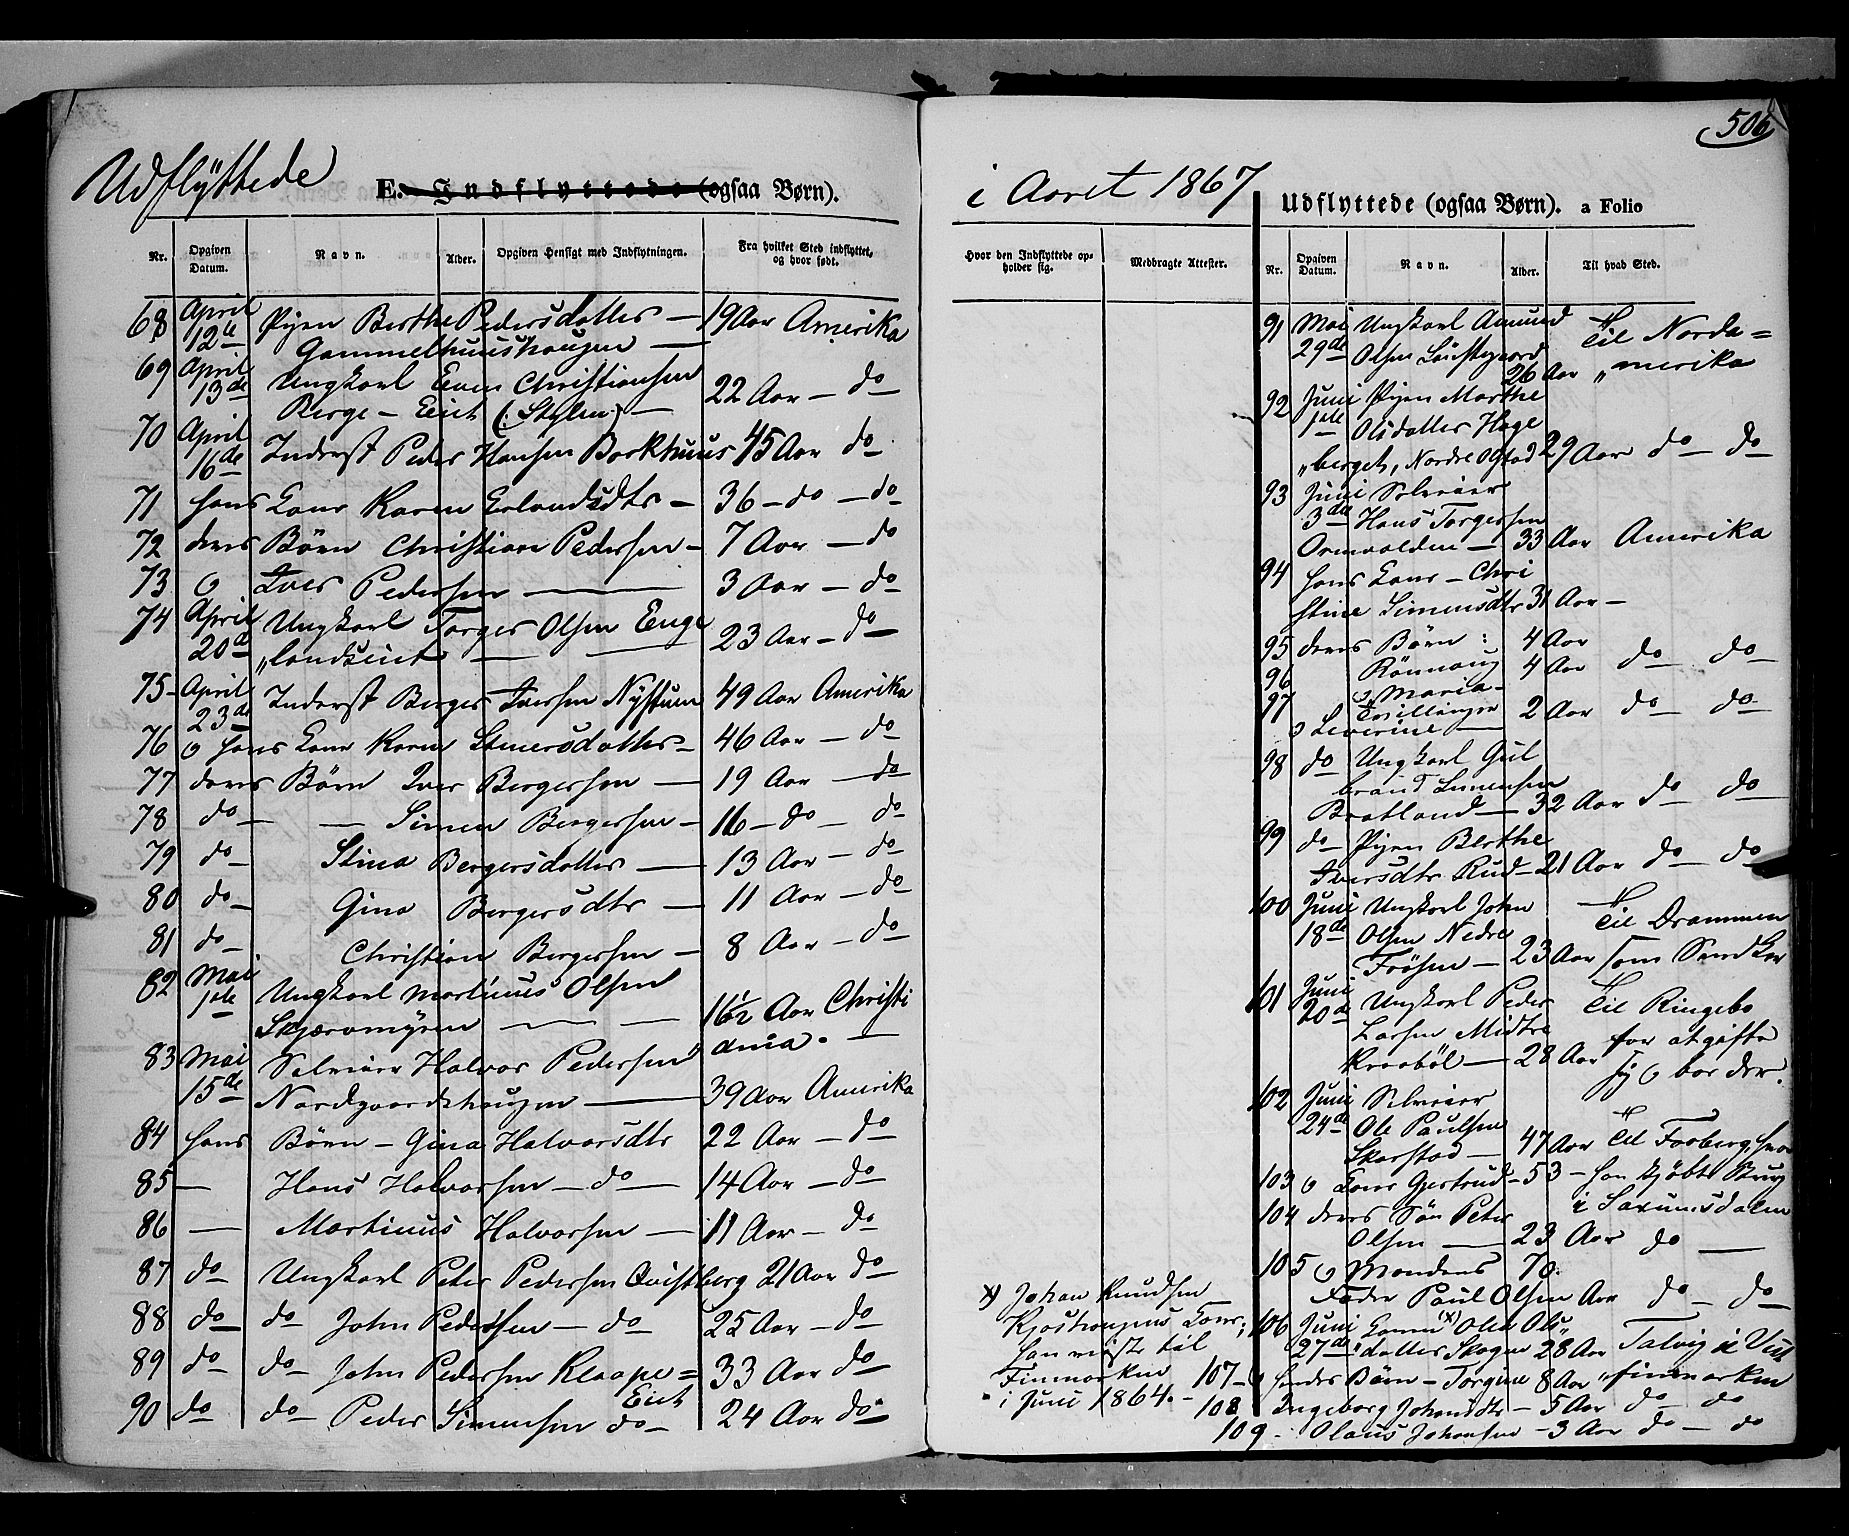 506
Udflyttede
E. Indflyttede (ogsaa Børn).
i Aaret 1867
Udflyttede (ogsaa Børn). a Folio
Nr. Opgiven Datum. Navn. Alder. Opgiven Hensigt med Indflytningen. Fra hvilket Sted indflyttet, og hvor født.
68 April 12te Pigen Berthe Pedersdatter — 19 Aar Amerika
Gammelhuushaugen —
69 April 13de Ungkarl Even Christiansen
Berge-Eiet (: Stylen :) — 22 Aar — do
70 April 16de Inderst Peder Hansen Borkhuus 45 Aar do
71 hans Kone Karen Erlandsdtr — 36 — do — do
72 deres Børn Christian Pedersen — 7 Aar — do
73 o Iver Pedersen — 3 Aar — do
74 April 20de Ungkarl Torger Olsen Enge
„landseiet — 23 Aar — do —
75 April 23de Inderst Berger Iversen Nystuen 49 Aar Amerika
76 o hans Kone Karen Simensdatter — 46 Aar — do
77 deres Børn Iver Bergersen — 19 Aar — do
78 do — — Simen Bergersen — 16 — do — do
79 do — Stina Bergersdatter — 13 Aar — do
80 do — Gina Bergersdtr — 11 Aar — do
81 do — Christian Bergersen — 8 Aar — do
82 Mai 1ste Ungkarl Martinus Olsen
Skjærvmyren — 16½ Aar Christi
ania. —
83 Mai 15de Selveier Halvor Pedersen
Nordgaardshaugen — 39 Aar Amerika
84 hans Børn — Gina Halvorsdtr 22 Aar — do
85 — Hans Halvorsen — do — 14 Aar — do
86 — Martinus Halvorsen — 11 Aar — do
87 do Ungkarl Peter Pedersen Qvistberg 21 Aar do
88 do do John Pedersen — do 25 Aar — do
89 do do John Pedersen Klaape=
Eiet 33 Aar do
90 do do Peder Simensen do — 24 Aar do
Hvor den Indflyttede opholder sig. Medbragte Attester.
x) Johan Knudsen
Kone;
han reiste til
Finmarken
i Juni 1864. —
Nr. Opgiven Datum. Navn. Alder. Til hvad Sted.
91 Mai 29de Ungkarl Amund
Olsen 26 Aar Til Norda=
„merika
92 Juni 1ste Pigen Marthe
Olsdatter Hage
„berget, Nordre 29 Aar do — do
93 Juni 3die Selveier
Hans Torgersen
— 33 Aar Amerika
94 hans Kone — Chri
stine Simensdtr 31 Aar —
95 deres Børn : 4 Aar
96 Rönnaug 4 Aar do — do
o Maria —
Tvillinger
97 o Severine — 2 Aar do — do
98 do Ungkarl Gul
brand Simensen
Bratland — 32 Aar do — do
99 do — Pigen Berthe
Iversdtr Rud — 21 Aar do — do
100 Juni 18de Ungkarl John
Olsen Nedre
Frösen — 23 Aar Til Drammen
som
101 Juni 20de Ungkarl Peder
Larsen Midtre
Kraabøl — 28 Aar Til Ringebo
for at gifte
sig o bor der.
102 Juni 24de Selveier
Ole Paulsen
Skarstad — 47 Aar Til Faaberg, hvor
103 o Kone Gertrud — 53 — han kjøbte
104 deres Søn Peter i Saxumsdalen
Olsen — 23 Aar do —
105 o Mandens 70
Fader Paul Olsen Aar do — do
106 Juni 27de Konen x) Olea Ols
„datter Skogen 28 Aar Talvig i Vest
107 — o hendes Børn — Torgine 8 Aar „finmarken
108 Ingeborg Johansdtr — 5 Aar do — do
109 . Olaus Johansen — 3 Aar do — do